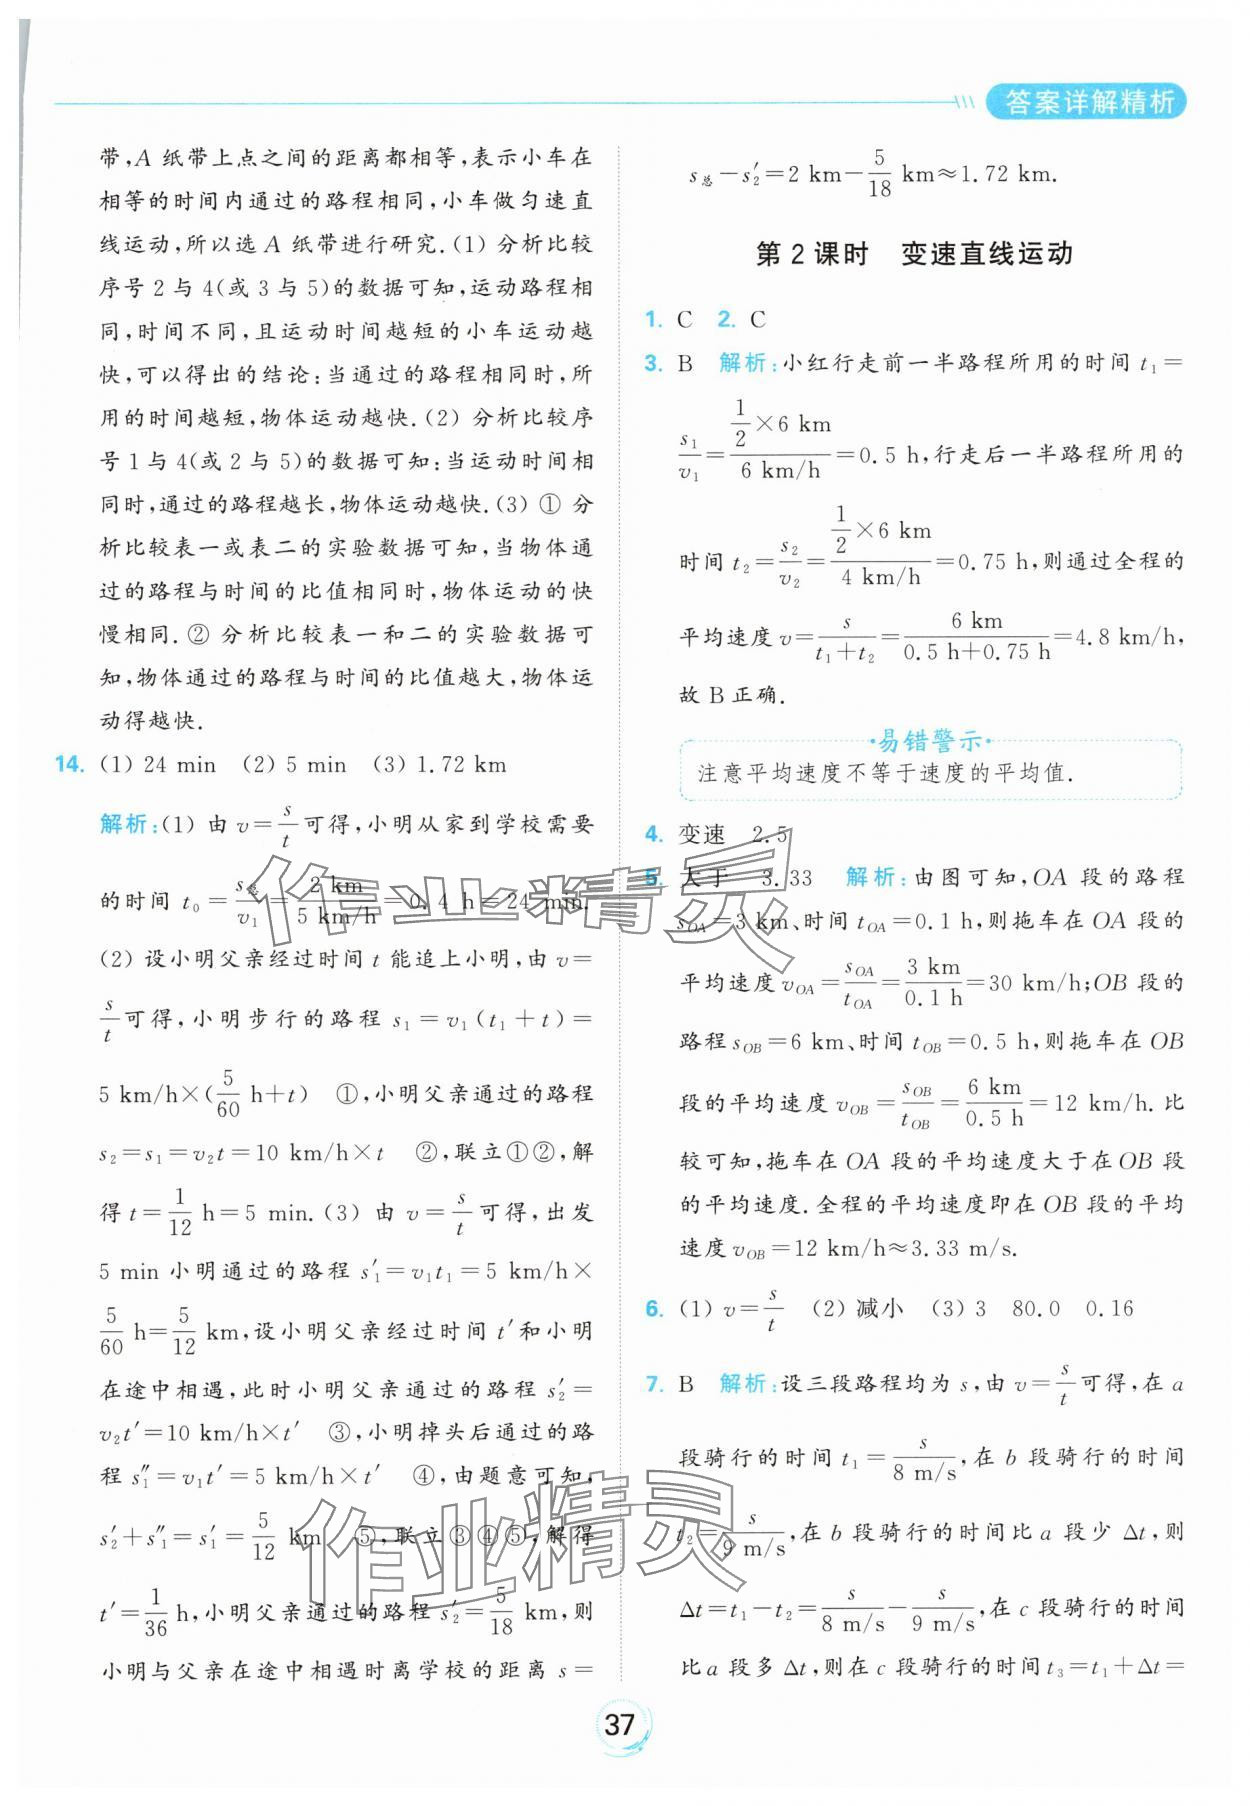 答案详解精析
带,A 纸带上点之间的距离都相等,表示小车在
相等的时间内通过的路程相同,小车做匀速直
线运动,所以选 A 纸带进行研究.(1) 分析比较
序号 2 与 4(或 3 与 5)的数据可知,运动路程相
同,时间不同,且运动时间越短的小车运动越
快,可以得出的结论:当通过的路程相同时,所
用的时间越短,物体运动越快.(2) 分析比较序
号 1 与 4(或 2 与 5)的数据可知:当运动时间相
同时,通过的路程越长,物体运动越快.(3) ① 分
析比较表一或表二的实验数据可知,当物体通
过的路程与时间的比值相同时,物体运动的快
慢相同. ② 分析比较表一和二的实验数据可
知,物体通过的路程与时间的比值越大,物体运
动得越快.
14. (1) 24 min (2) 5 min (3) 1.72 km
解析:(1) 由 v=s/t可得,小明从家到学校需要
的时间 t₀=s总/v₁=2 km/5 km/h=0.4 h=24 min.
(2) 设小明父亲经过时间 t 能追上小明,由 v=
s/t可得,小明步行的路程 s₁=v₁(t₁+t)=
5 km/h×(5/60 h+t) ①,小明父亲通过的路程
s₂=s₁=v₂t=10 km/h×t ②,联立①②,解
得 t=1/12 h=5 min.(3) 由 v=s/t可得,出发
5 min 小明通过的路程 s′₁=v₁t₁=5 km/h×
5/60 h=5/12 km,设小明父亲经过时间 t′和小明
在途中相遇,此时小明父亲通过的路程 s′₂=
v₂t′=10 km/h×t′ ③,小明掉头后通过的路
程 s″₁=v₁t′=5 km/h×t′ ④,由题意可知,
s′₂+s″₁=s′₁=5/12 km ⑤,联立③④⑤,解得
t′=1/36 h,小明父亲通过的路程 s′₂=5/18 km,则
小明与父亲在途中相遇时离学校的距离 s=
s总-s′₂=2 km-5/18 km≈1.72 km.
第 2 课时 变速直线运动
1. C 2. C
3. B 解析:小红行走前一半路程所用的时间 t₁=
s₁/v₁=1/2×6 km/6 km/h=0.5 h,行走后一半路程所用的
时间 t₂=s₂/v₂=1/2×6 km/4 km/h=0.75 h,则通过全程的
平均速度 v=s/t₁+t₂=6 km/0.5 h+0.75 h=4.8 km/h,
故 B 正确.
·易错警示·
注意平均速度不等于速度的平均值.
4. 变速 2.5
5. 大于 3.33 解析:由图可知,OA 段的路程
s_OA=3 km、时间 t_OA=0.1 h,则拖车在 OA 段的
平均速度 v_OA=s_OA/t_OA=3 km/0.1 h=30 km/h;OB 段的
路程 s_OB=6 km、时间 t_OB=0.5 h,则拖车在 OB
段的平均速度 v_OB=s_OB/t_OB=6 km/0.5 h=12 km/h.比
较可知,拖车在 OA 段的平均速度大于在 OB 段
的平均速度.全程的平均速度即在 OB 段的平均
速度 v_OB=12 km/h≈3.33 m/s.
6. (1) v=s/t (2) 减小 (3) 3 80.0 0.16
7. B 解析:设三段路程均为 s,由 v=s/t可得,在 a
段骑行的时间 t₁=s/8 m/s,在 b 段骑行的时间
t₂=s/9 m/s,在 b 段骑行的时间比 a 段少 Δt,则
Δt=t₁-t₂=s/8 m/s-s/9 m/s,在 c 段骑行的时间
比 a 段多 Δt,则在 c 段骑行的时间 t₃=t₁+Δt=
作业精灵
作业精灵
37